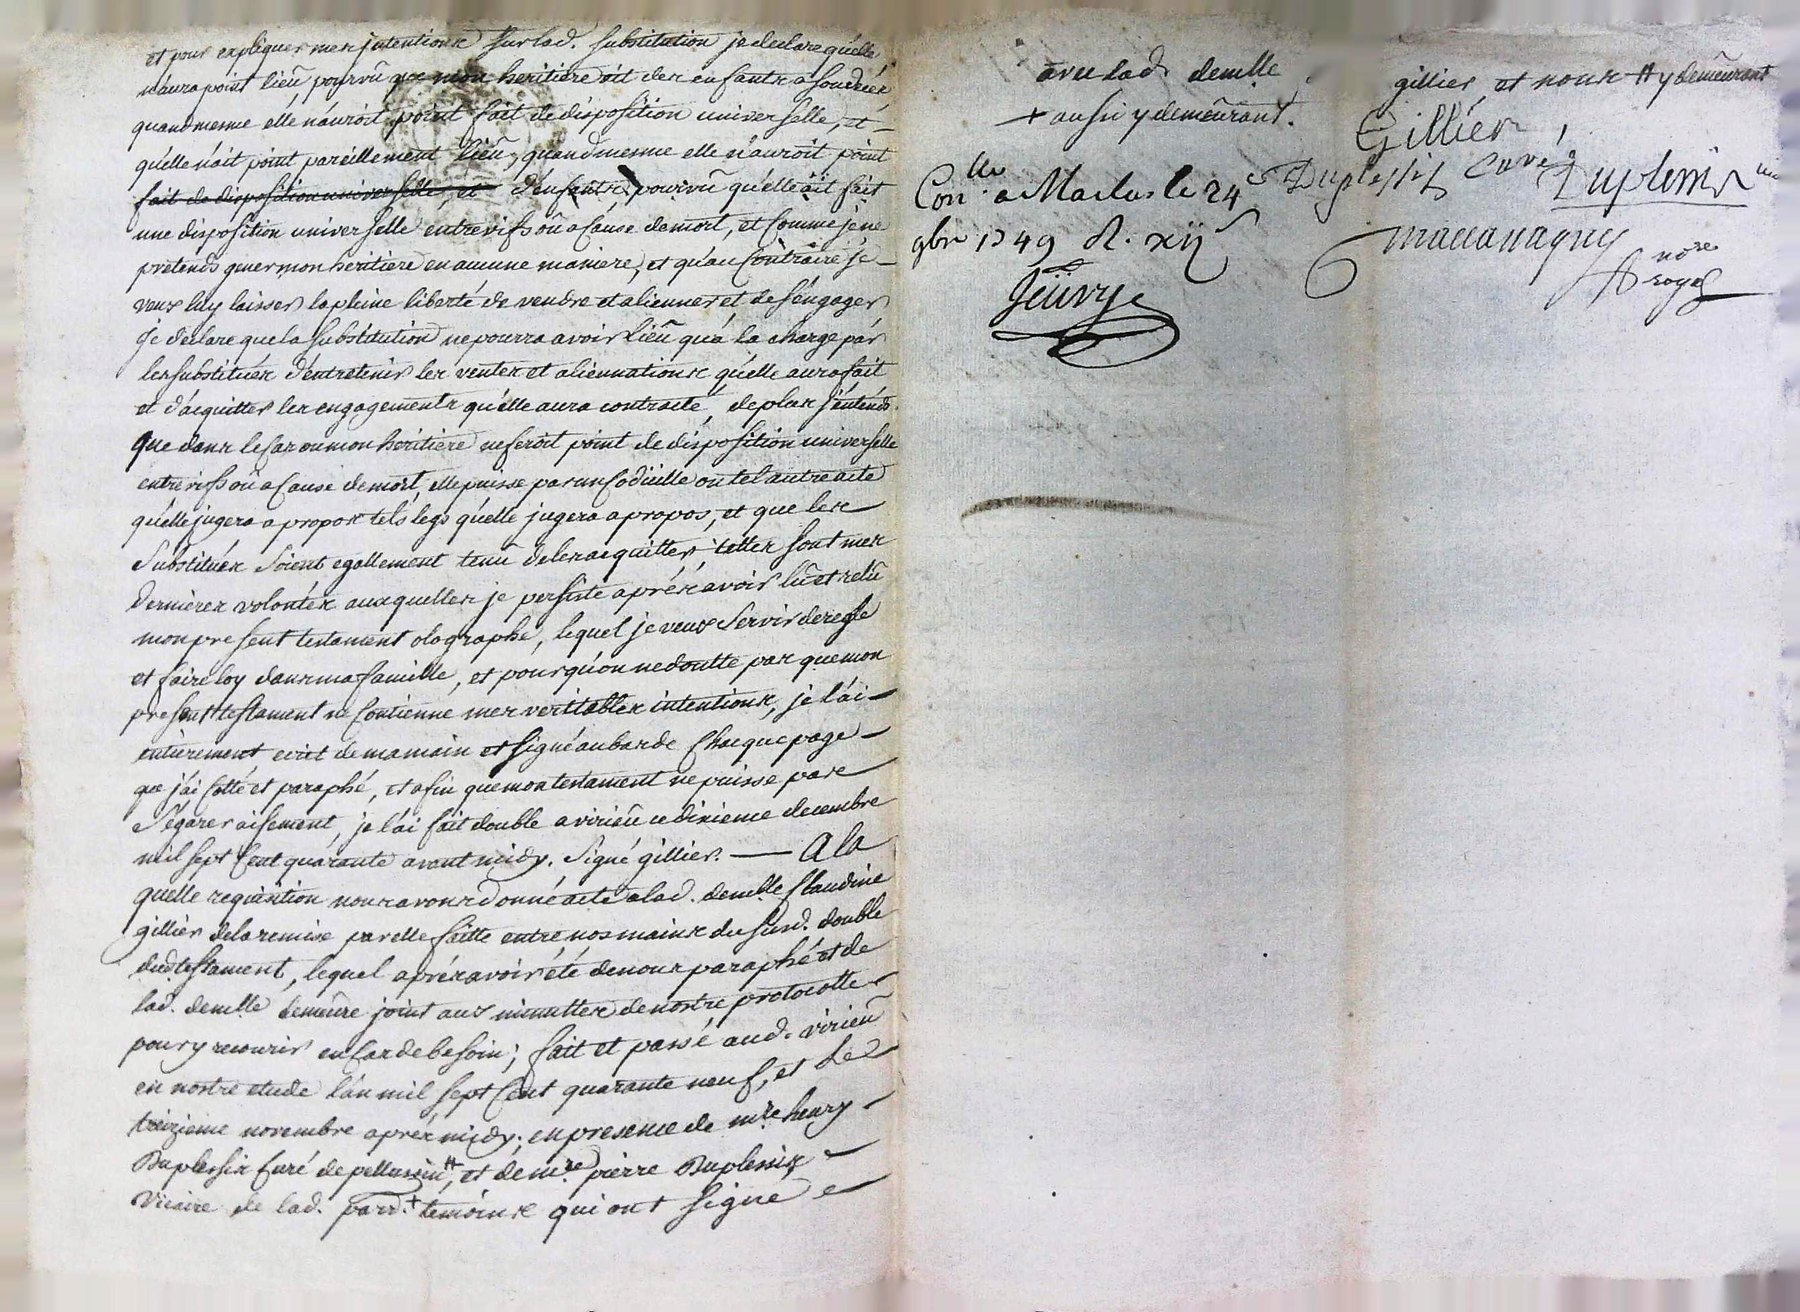 et pour expliquer mes jntentions sur lad. substitution je declare qu'elle
n'aura point lieû pourvû que mon heritiere ait des enfants a son decés
quand mesme elle n'auroit point fait de disposition universelle, et
qu'elle n'ait point pareillement lieû, quand mesme elle n'auroit point
fait de disposition universelle, et d'enfants, pourvû qu'elle ait fait
une disposition universelle entre vifs oû a cause de mort, et comme je ne
prétends gener mon heritiere en aucune maniere, et qu'au contraire je
veux luy laisser la pleine liberté de vendre et alienner et de s'engager
Je declare que la substitution ne pourra avoir lieû qu'a la charge par
les substitués d'entretenir les ventes et aliennations qu'elle aura fait
et d'acquitter les engagements qu'elle aura contracté, de plus j'entends
que dans le cas ou mon heritiere ne feroit point de disposition universelle
entre vifs oû a cause de mort, elle puisse par un codicille ou tel autre acte
qu'elle jugera a propos tels legs qu'elle jugera a propos, et que les
substitués soient egallement tenû de les acquitter, telles sont mes
dernieres volontés auxquelles je persiste aprés avoir lû et relû
mon present testament olographe, lequel je veux servir de regle
et faire loy dans ma famille, et pour qu'on ne doutte pas que mon
present testament ne contienne mes veritables intentions, je l'ai
entierement ecrit de ma main et signé au bas de chacque page
que j'ai cotté et paraphé, et afin que mon testament ne puisse pas
s'egarer aisement, je l'ai fait double a virieû ce dixieme decembre
mil sept cent quarante avant midy. Signé gillier. — A la
quelle requisition nous avons donné acte a lad. demlle Claudine
gillier de la remise par elle faitte entre nos mains du susd. double
dud testament, lequel aprés avoir été de nous paraphé et de
lad. demlle demeûre joint aux minuttes de nostre protocolle
pour y recourir en cas de besoin; fait et passé aud. virieû
en nostre etude l'an mil sept cent quarante neuf, et le
treizieme novembre aprés midy; en presence de mre henry
Duplessis curé de pelussin #, et de mre pierre Duplessis
vicaire de lad. parr. + temoins qui ont signé
avec lad. demlle gillier, et nous # y demeûrant
+ aussi y demeûrant.
Gillier
Duplessis curé Duplessis
Conlle a Maclas le 24
9bre 1749 R. xij s
Jeüvry
maccanagny
nore
royal